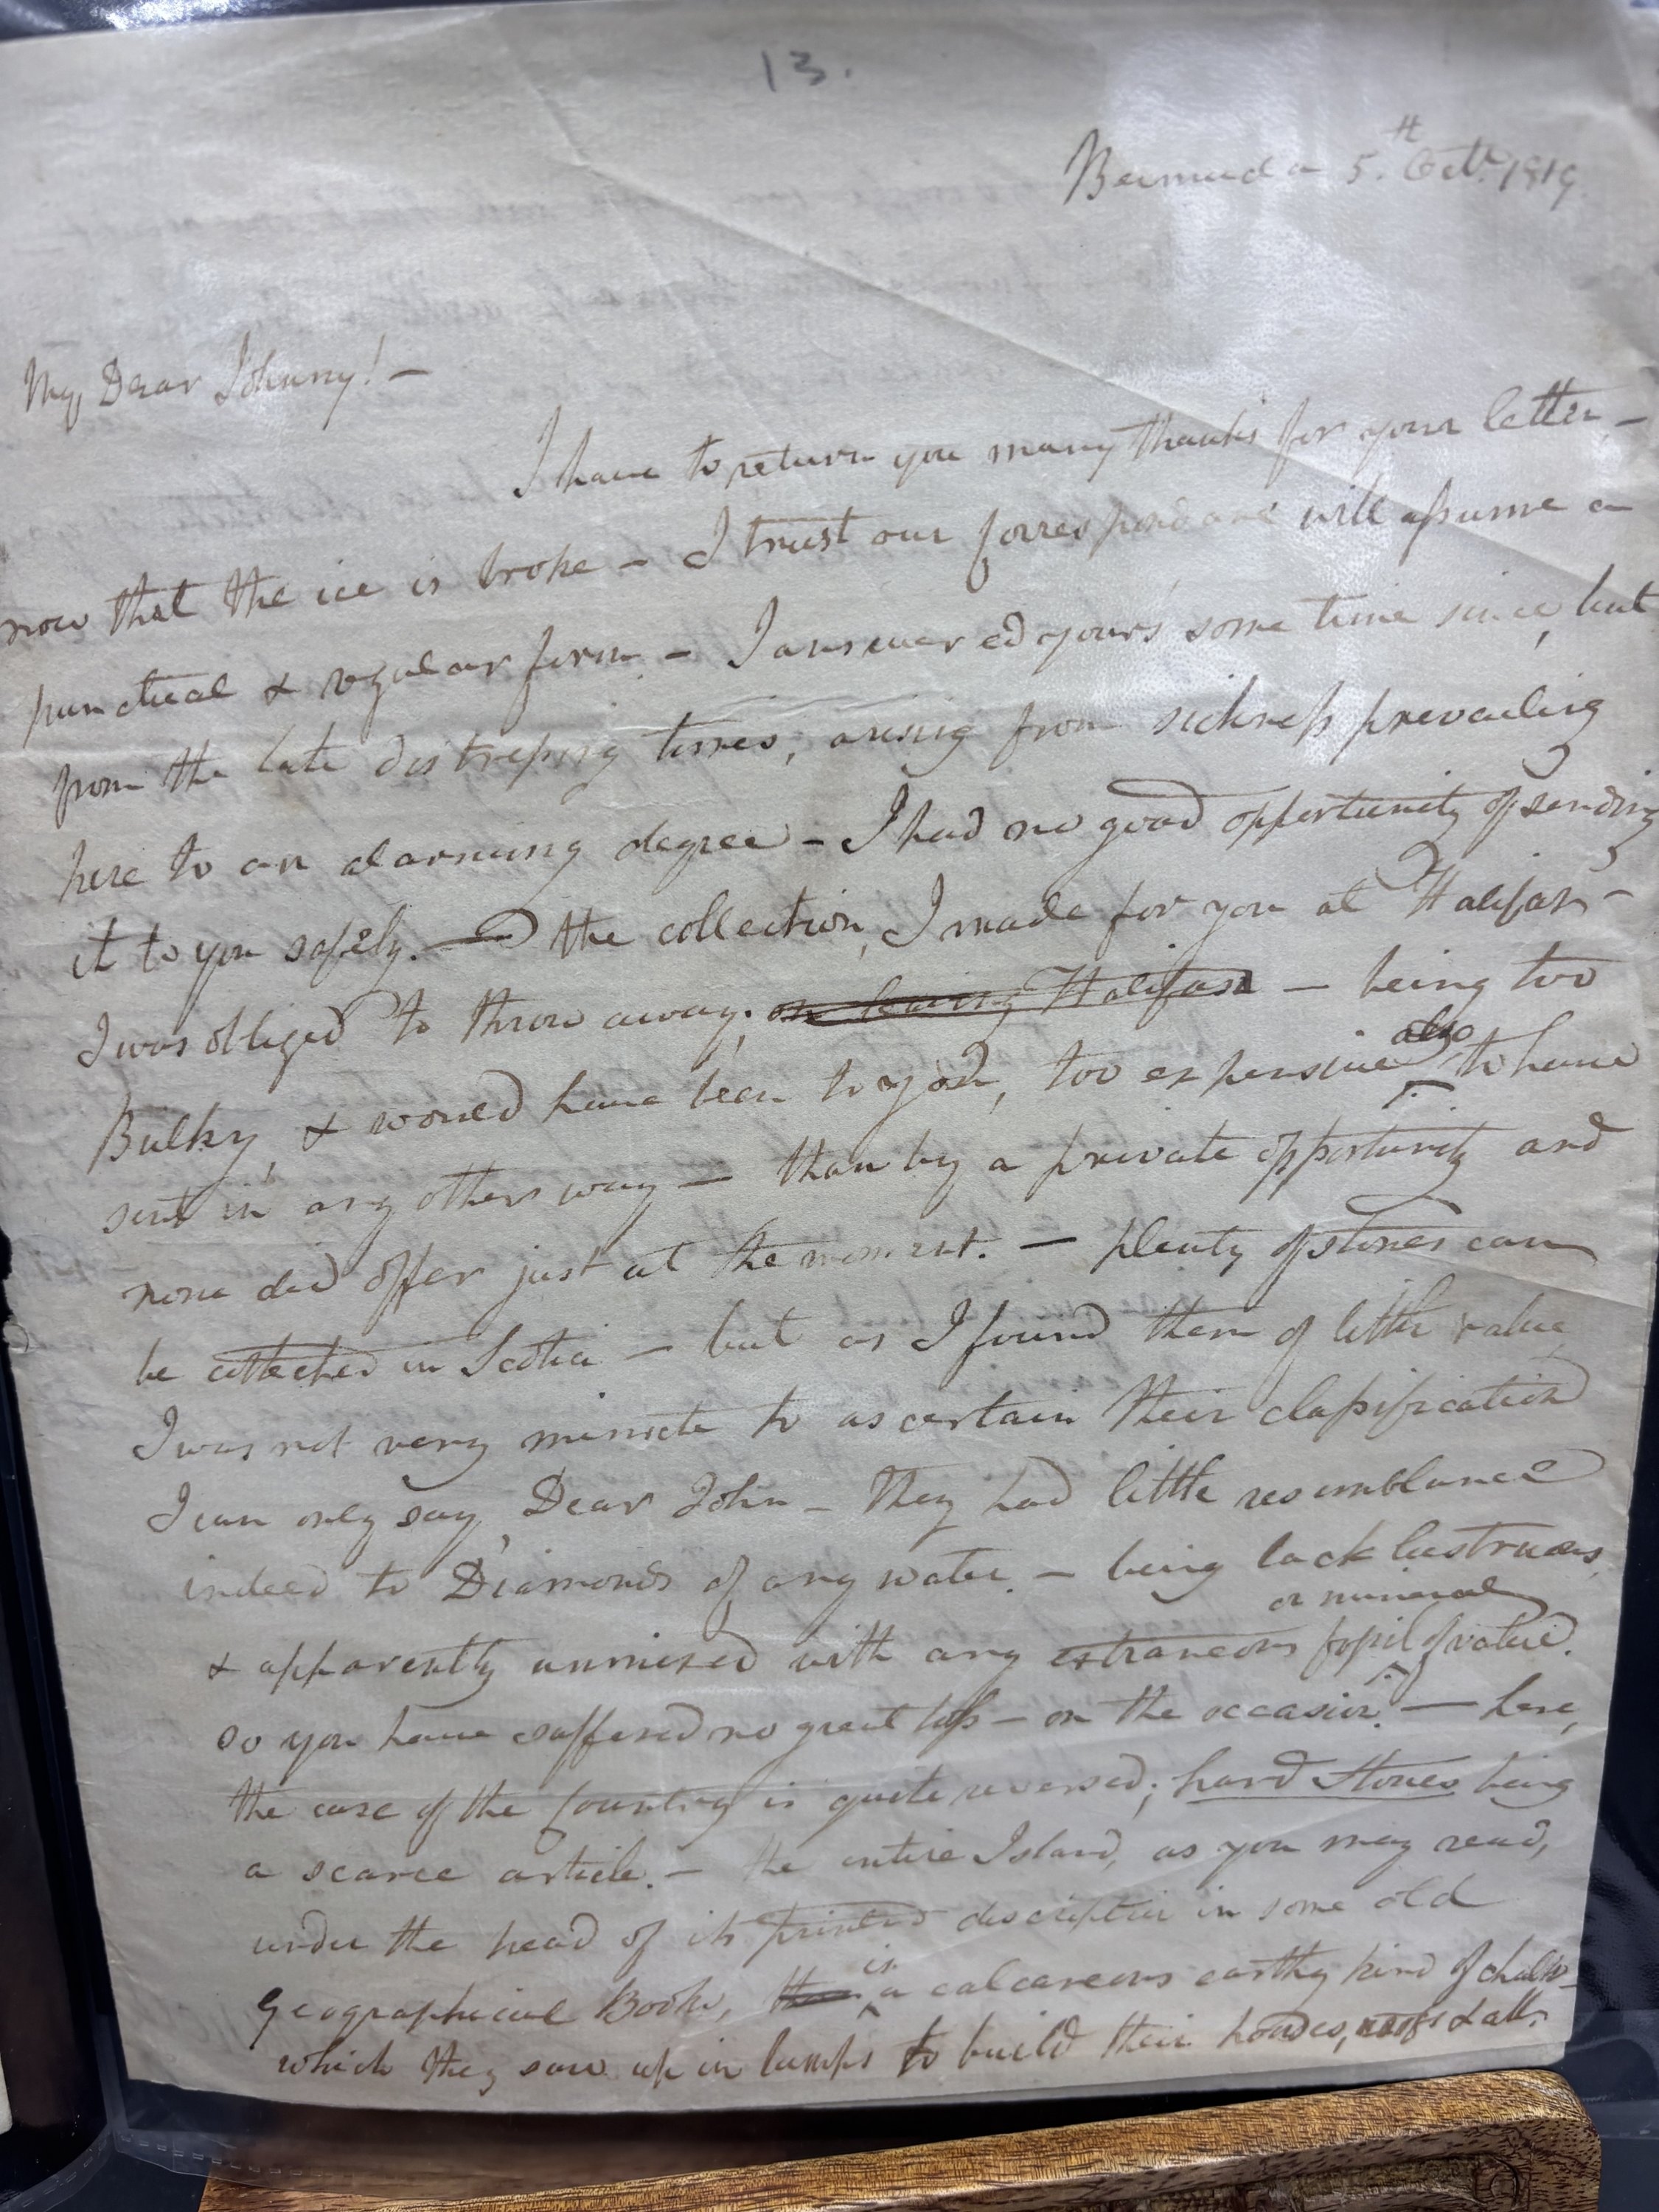 13.
Bermuda 5.th Octr. 1819.
My Dear Johnny! —
I have to return you many thanks for your letter, —
now that the ice is broke — I trust our Correspondance will assume a
punctual & regular form — I answered yours some time since, but
from the late distressing times, arising from sickness prevailing
here to an alarming degree — I had no good opportunity of sending
it to you safely. — The collection, I made for you at Halifax —
I was obliged to throw away. on leaving Halifax — being too
Bulky, & would have been to you, too expensive also to have
sent in any other way — than by a private opportunity and
none did offer just at the moment. — plenty of stones can
be collected in Scotia — but as I found them of little value,
I was not very minute to ascertain their classification
I can only say, Dear John — they had little resemblance
indeed to Diamonds of any water. — being lack lustrous,
or mineral
& apparently unmixed with any extraneous fossil of value.
so you have suffered no great loss — on the occasion. — here,
the case of the Country is quite reversed; hard Stones being
a scarce article. — the entire Island, as you may read,
under the head of its printed description in some old
is
Geographical Books, a calcareous earthy kind of chalk —
which they saw up in lumps to build their houses, roofs & all.